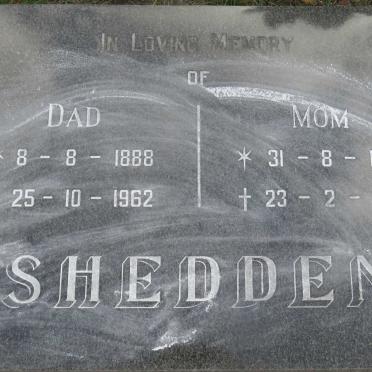 IN LOVING MEMORY
OF
DAD MOM
* 8 - 8 - 1888 * 31 - 8 - 1
25 - 10 - 1962 † 23 - 2 -
SHEDDEN